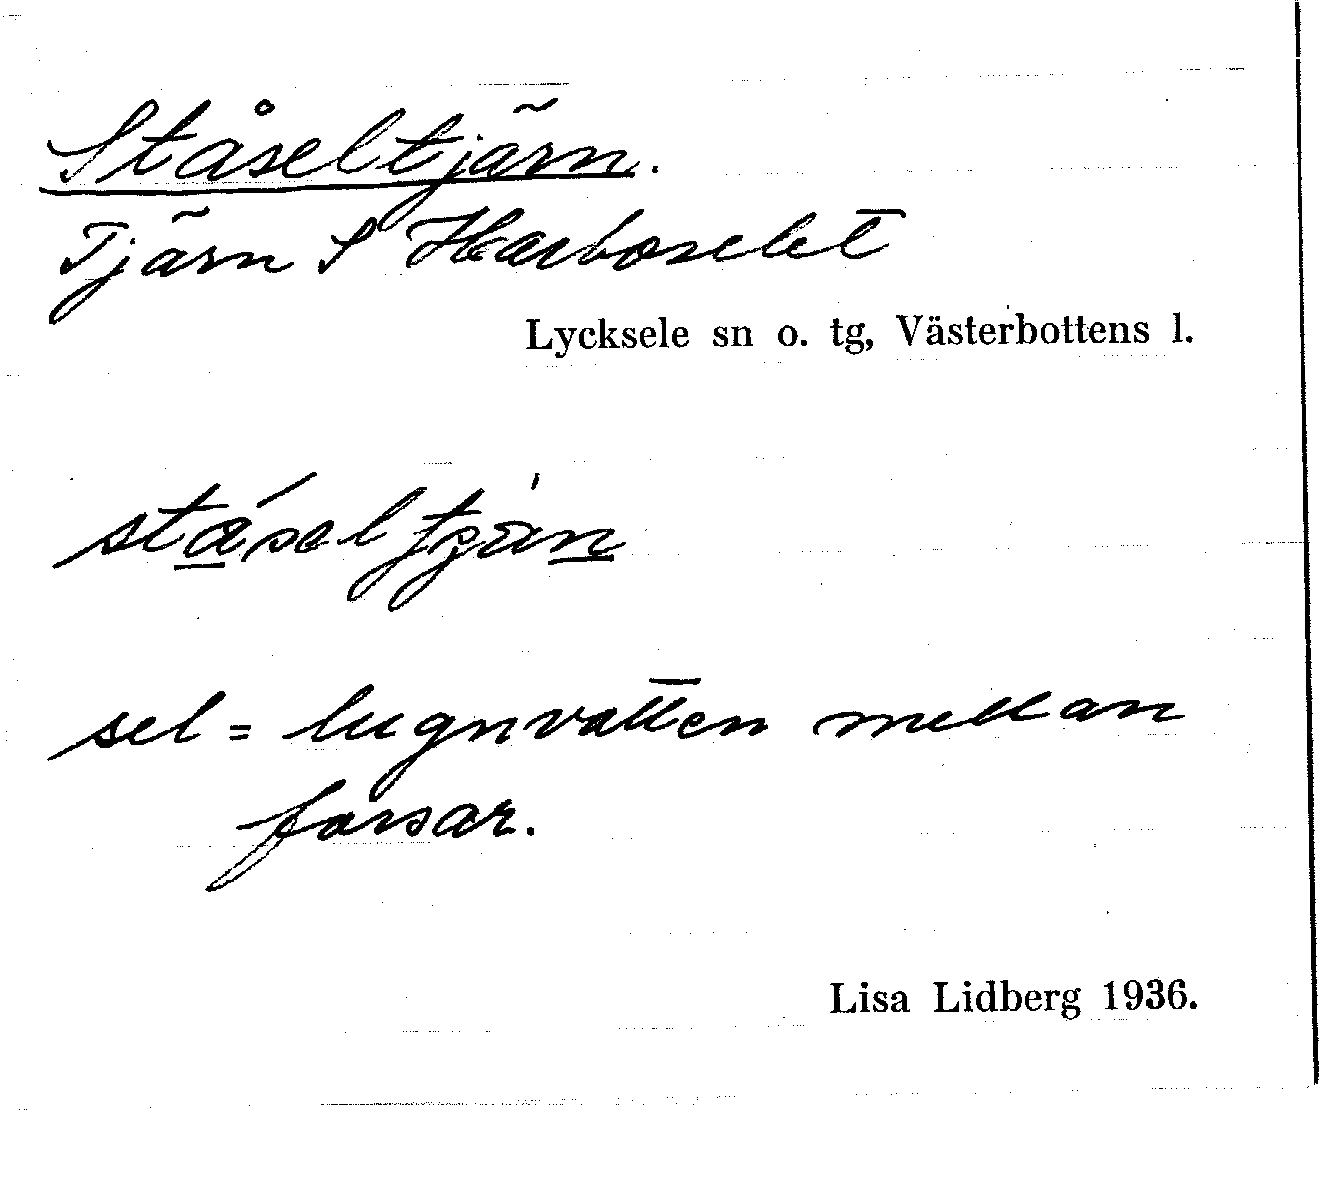 Ståseltjärn.
Tjärn S
Lycksele sn o. tg, Västerbottens l.
sel = lugnvatten mellan
forsar.
Lisa Lidberg 1936.